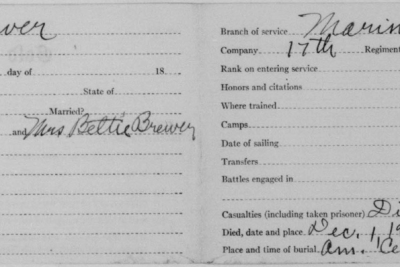 wer
day of 18
State of
Married?
and Mrs Bettie Brewer
Branch of service Marin
Company 17th Regiment
Rank on entering service
Honors and citations
Where trained
Camps
Date of sailing
Transfers
Battles engaged in
Casualties (including taken prisoner) Di
Died, date and place. Dec. 1, 19
Place and time of burial. Am. Ce